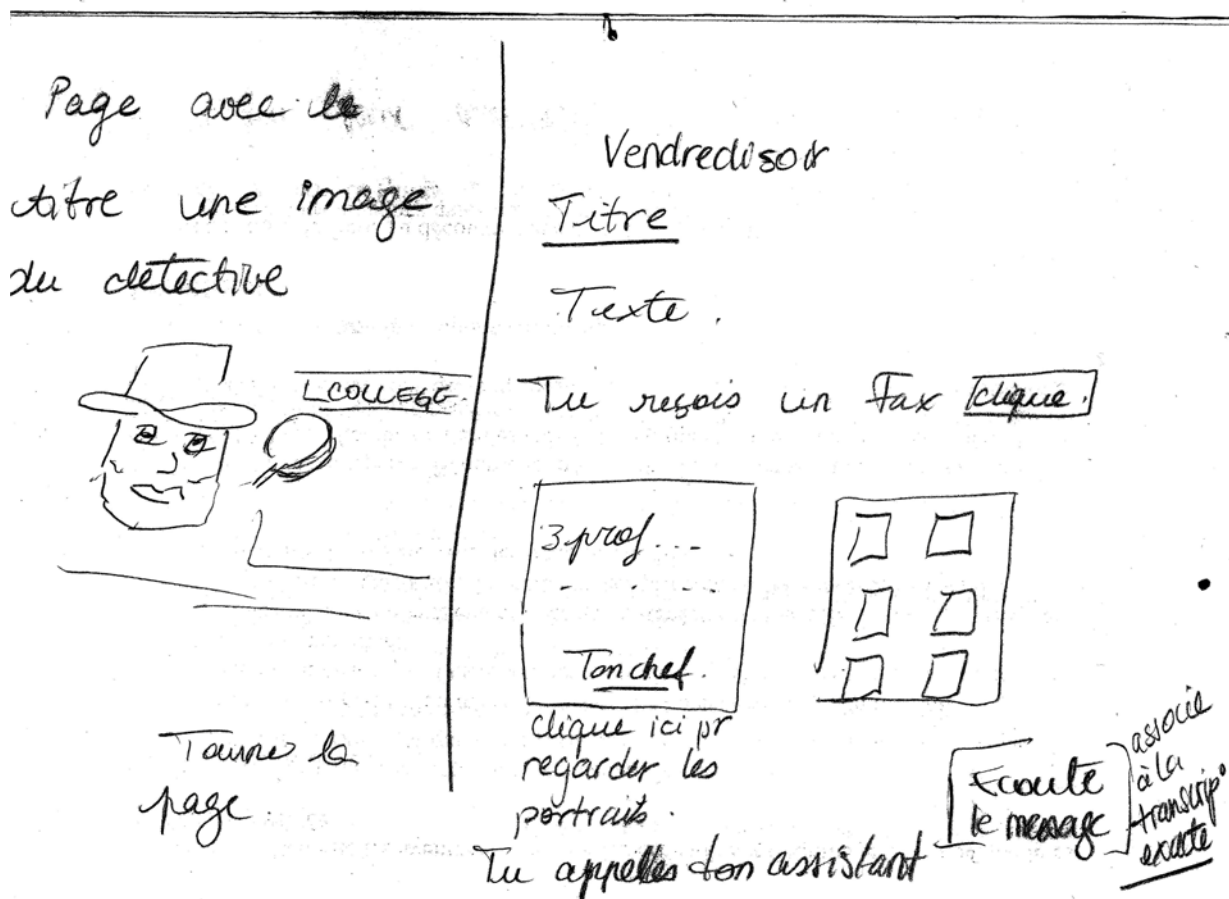 Page avec le
titre une image
du detective
L COLLEGE
Tourne la
page
Vendredi soir
Titre
Texte.
Tu reçois un Fax clique.
3 prof...
Ton chef.
clique ici pr
regarder les
portraits.
Tu appelles ton assistant
Ecoute
le message
associe
à la
transcrip°
exacte